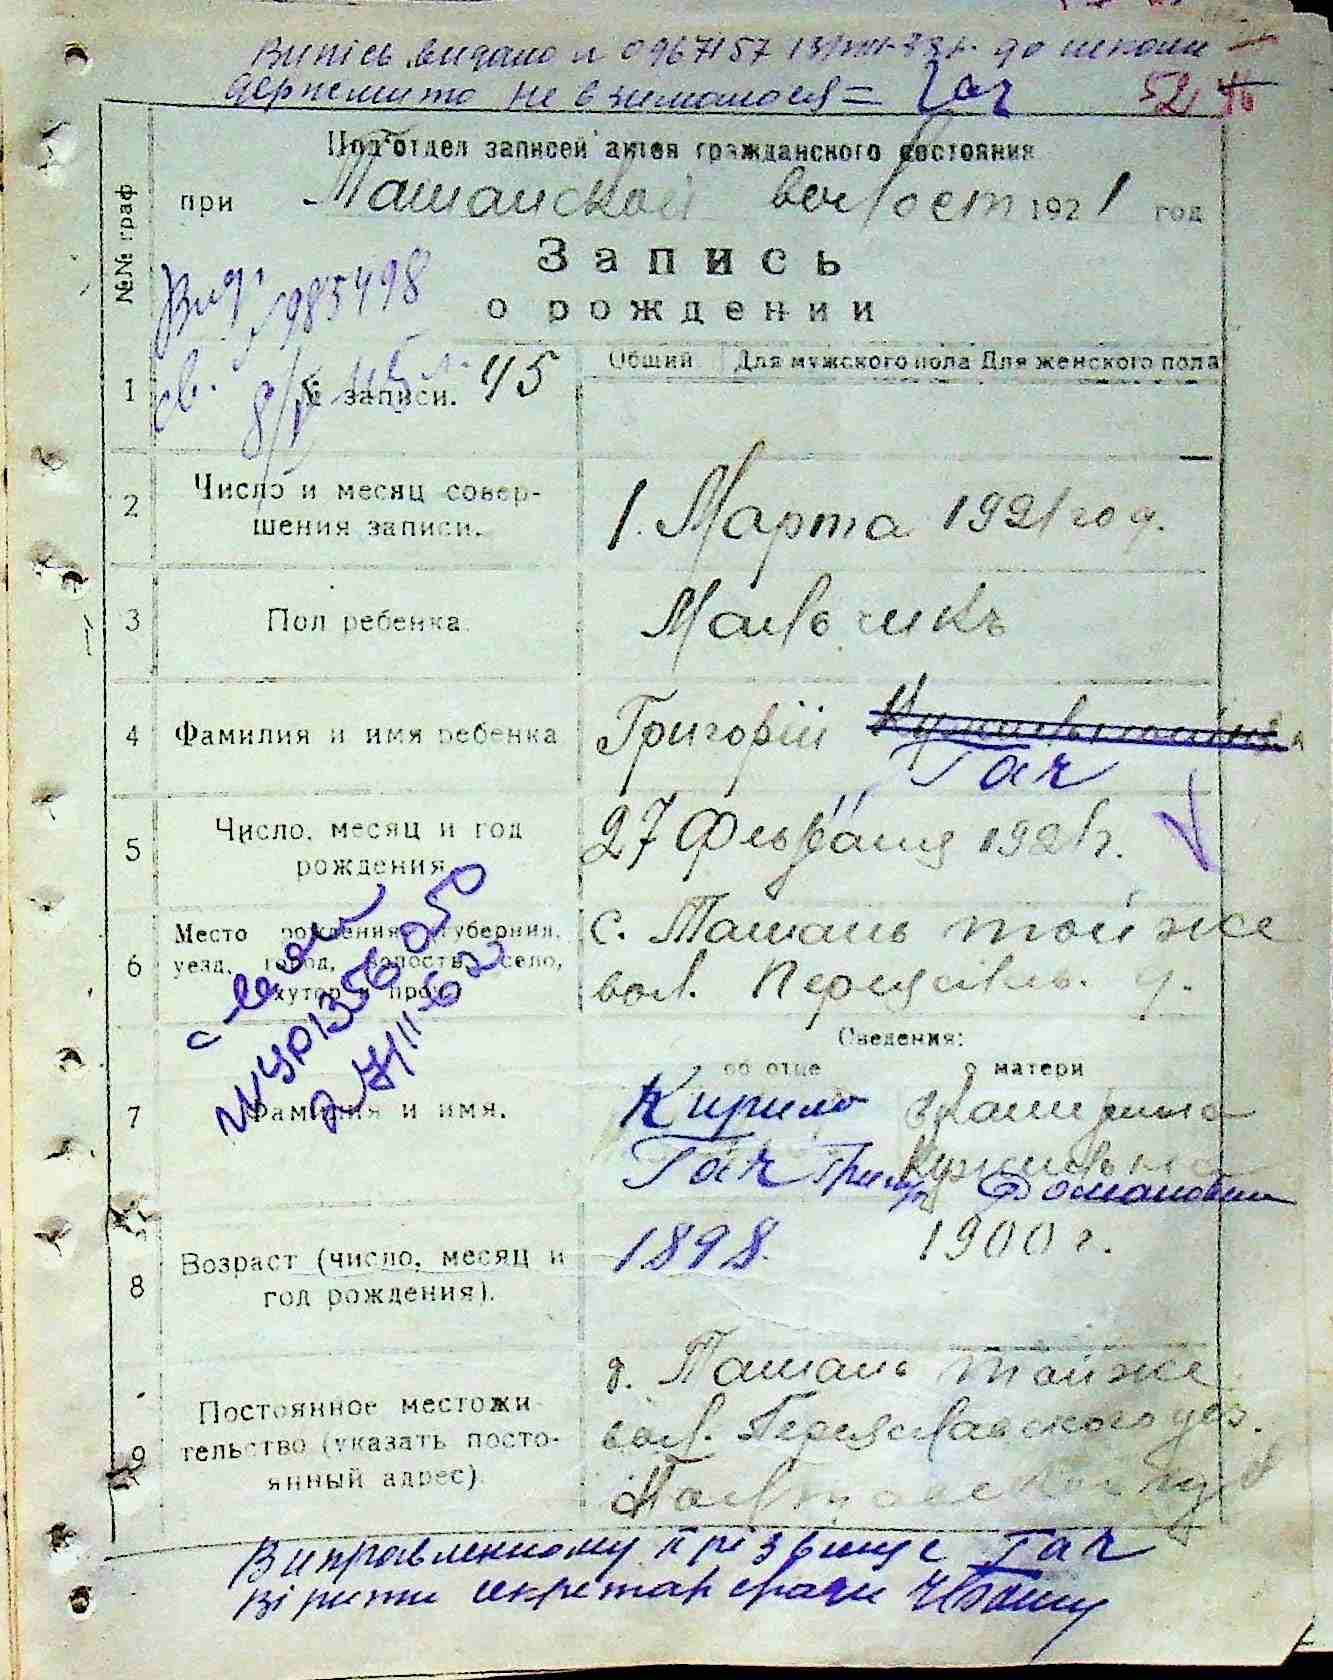 Випись видано № 0967157 до школи
держмито не взималося = Гач
52
Подотдел записей актов гражданского состояния
при Ташанской волост 1921 год
№№ граф
Запись
о рождении
Вид.
св. 985498
Общий Для мужского пола Для женского пола
1 № записи. 45
2 Число и месяц совер-
шения записи. 1. Марта 1921 год.
3 Пол ребенка Мальчикъ
4 Фамилия и имя ребенка Григорій
Гач
5 Число, месяц и год
рождения 27 1921 г.
6 Место рождения губерния,
уезд, город, волость, село,
хутор и проч.
с. Ташань той же
вол. Переяславль. у.
Сведения:
об отце о матери
7 Фамилия и имя. Кирило
Гач
8 Возраст (число, месяц и
год рождения). 1898. 1900 г.
9 Постоянное местожи-
тельство (указать посто-
янный адрес).
Ташань той же
вол. Переяславского уез.
Полтавской губ
Виправленному прізвище Гач
вірити секретар